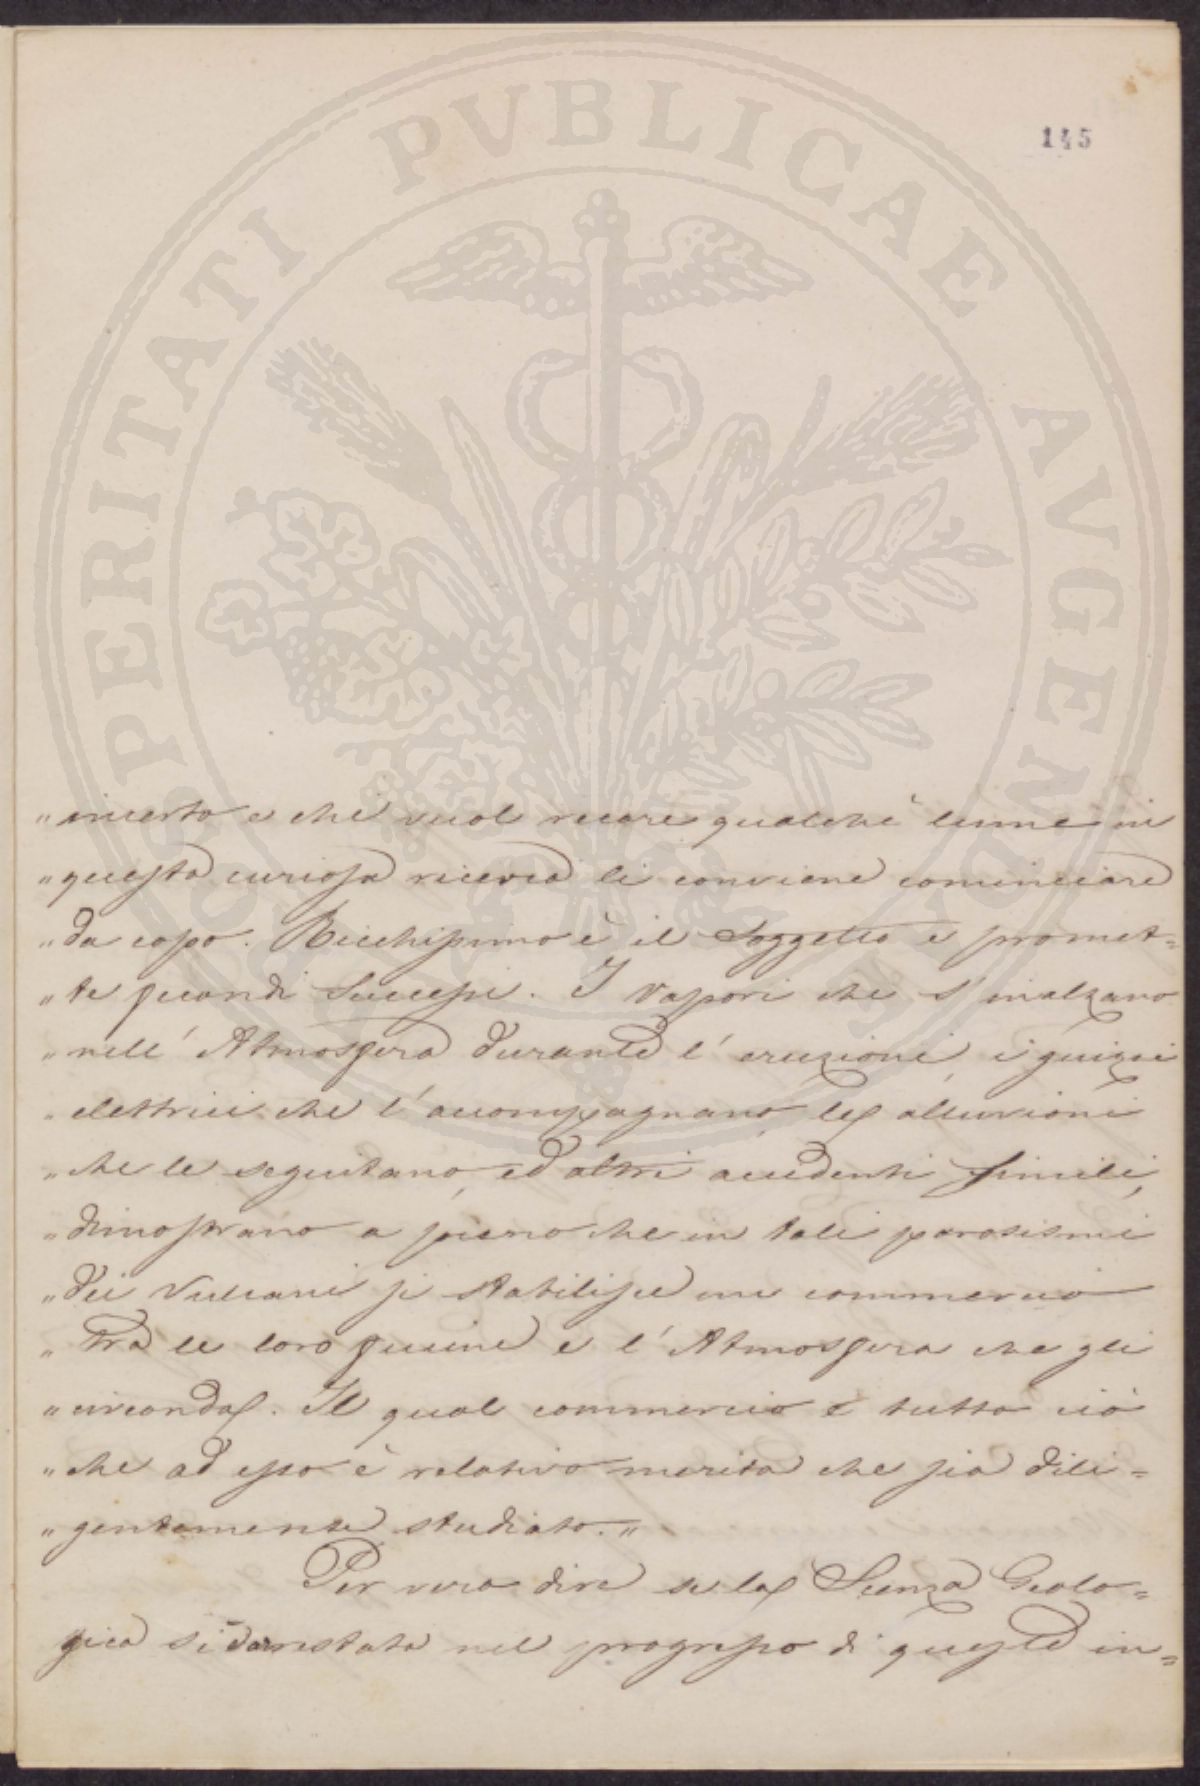 PROSPERITATI PUBLICAE AUGENDAE
145
„ incerto e chi vuol recare qualche lume in
„ questa curiosa ricerca li conviene cominciare
„ da capo. Ricchissimo è il Soggetto e promet=
„ te fecondi Successi. I Vapori che s'inalzano
„ nell' Atmosfera durante l' eruzioni, i guizzi
„ elettrici che l'accompagnano, le alluvioni
„ che le seguitano, ed altri accidenti simili,
„ dimostrano a pieno che in tali parosismi
„ dei Vulcani si stabilisce un commercio
„ tra le loro fucine e l' Atmosfera che gli
„ circonda. Il qual commercio e tutto ciò
„ che ad esso è relativo merita che sia dili=
„ gentemente studiato. „
Per vero dire se la Scienza Geolo=
gica si arrestata nel progresso di queste in=